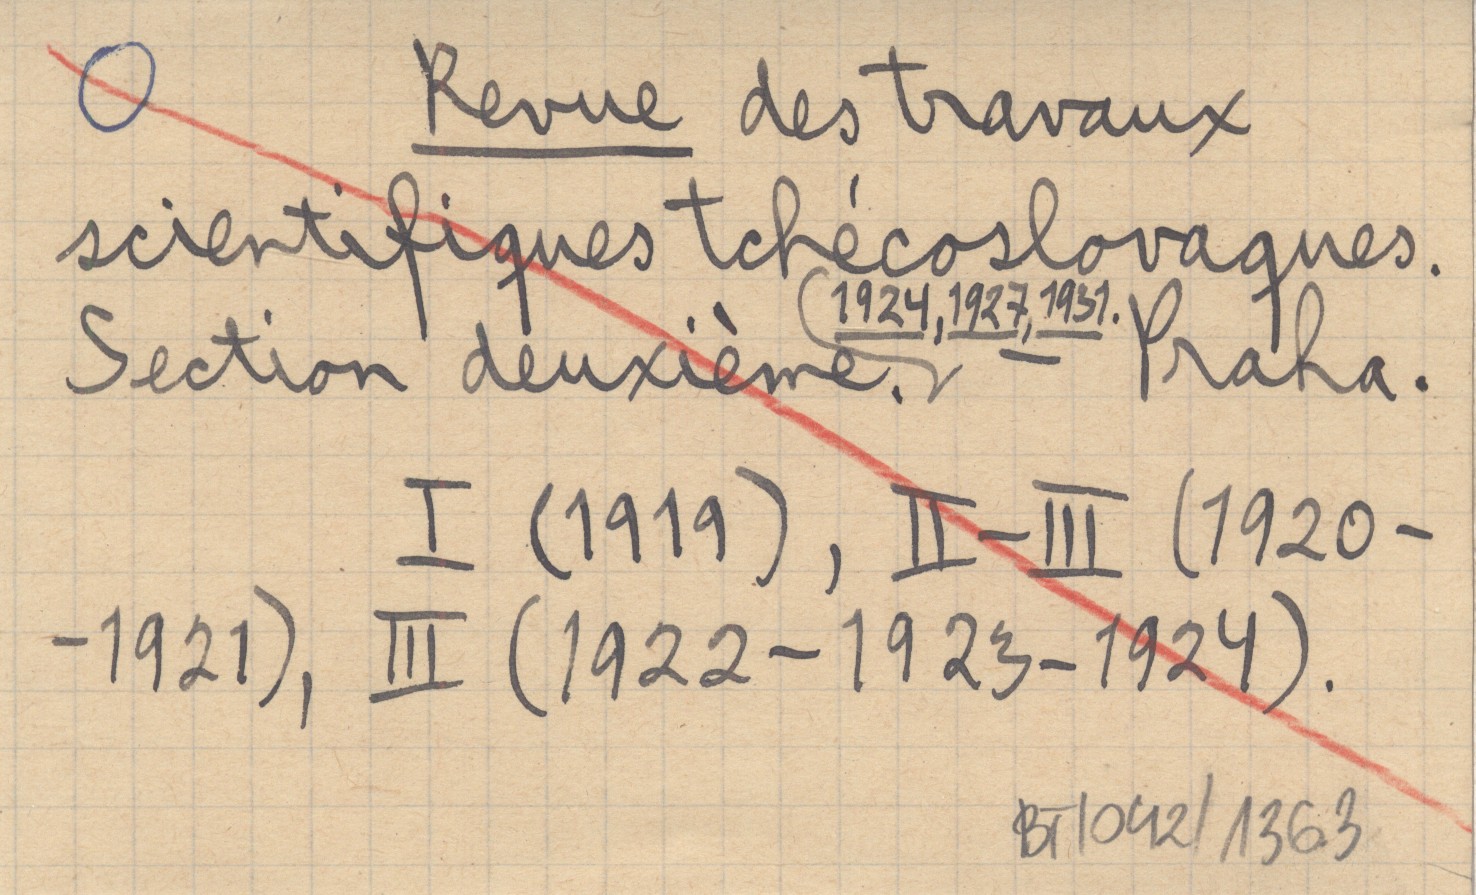 Revue des travaux
scientifiques tchécoslovaques.
1924, 1927, 1931.
Section deuxième. — Praha.
I (1919), II-III (1920-
-1921), III (1922-1923-1924).
BT/042/1363